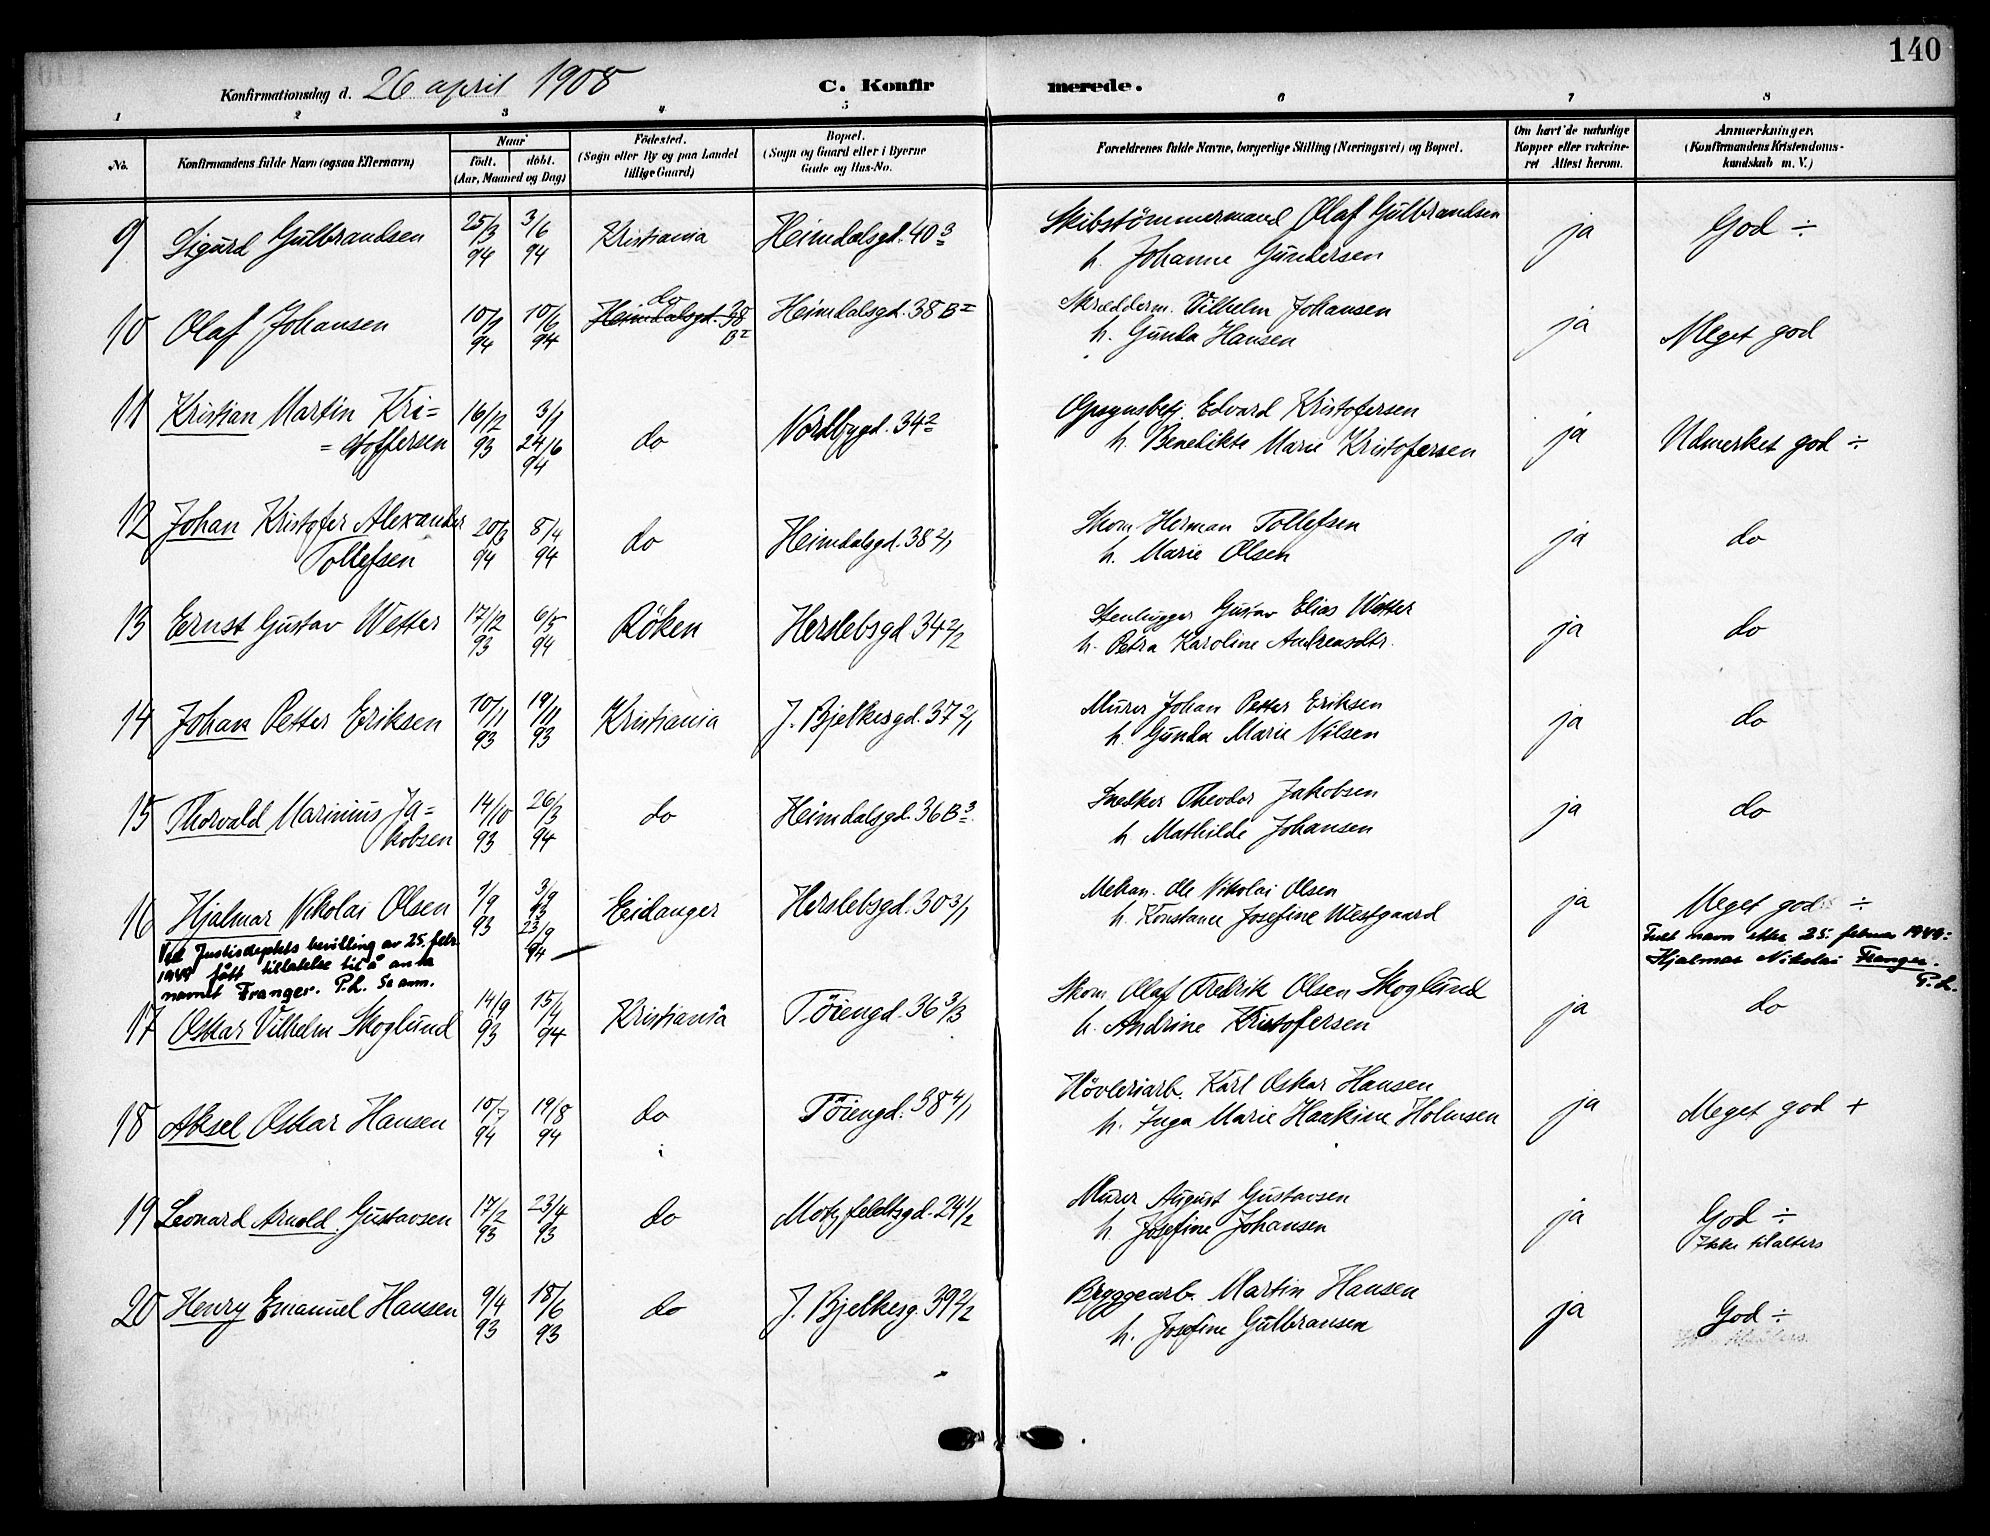 140
Konfirmationsdag d. 26 april 1908 C. Konfirmerede.
1 2 3 4 5 6 7 8
No. Konfirmandens fulde Navn (ogsaa Efternavn) Naar født. døbt. (Aar, Maaned og Dag) Födested. (Sogn eller By og paa Landet tillige Gaard) Bopæl. (Sogn og Gaard eller i Byerne Gade og Hus-No. Forældrenes fulde Navne, borgerlige Stilling (Næringsvei) og Bopæl. Om havt de naturlige Kopper eller vakcineret Attest herom. Anmærkninger. (Konfirmandens Kristendomskundskab m. V.)
9 Sigurd Gulbrandsen 25/3 94 3/6 94 Kristiania Heimdalsgd. 40 3 Skibstömmermand Olaf Gulbrandsen ja God ÷
h. Johanne Gundersen
10 Olaf Johansen 10/1 94 10/6 94 do Heimdalsgd. 38 B II Heimdalsgd. 38 B II Skrædderm. Vilhelm Johansen ja Meget god
h. Gunda Hansen
11 Kristian Martin Kri= 16/12 93 3/1 24/6 94 do Nordbygd. 34 2 Opsynsbetj. Edvard Kristofersen ja Udmerket god ÷
= stoffersen h. Benedikte Marie Kristofersen
12 Johan Kristofer Alexander 20/3 94 8/4 94 do Heimdalsgd. 38 2/1 Skom. Herman Tollefsen ja do
Tollefsen h. Marie Olsen
13 Ernst Gustav Wetter 17/12 93 6/5 94 Röken Herslebsgd 34 2/2 Stenhugger Gustav Elias Wetter ja do
h. Petra Karoline Andreasdtr.
14 Johan Petter Eriksen 10/11 93 19/11 93 Kristiania J. Bjelkesgd. 37 2/1 Murer Johan Petter Eriksen ja do
h. Gunda Marie Nilsen
15 Thorvald Marinius Ja= 14/10 93 26/3 94 do Heimdalsgd. 36 B 3 Snedker Theodor Jakobsen ja do
kobsen h Mathilde Johansen
16 Hjalmar Nikolai Olsen 1/9 93 3/9 93 23/9 94 Eidanger Herslebsgd. 30 3/1 Mekan. Ole Nikolai Olsen ja Meget god ÷
h. Konstance Josefine Westgaard
Ved Justisdeptets bevilling av 25. febr.
1949 fått tillatelse til å anta
navnet Franger. P.L. Se anm.
Fullt navn etter 25. februar 1949:
Hjalmar Nikolai Franger.
P.L.
17 Oskar Vilhelm Skoglund 14/9 93 15/4 94 Kristiania Töiengd. 36 3/3 Skom. Olaf Fredrik Olsen Skoglund ja do
h. Andrine Kristofersen
18 Aksel Oskar Hansen 10/7 94 19/8 94 do Töiengd. 38 4/1 Hövleriarb. Karl Oskar Hansen ja Meget god +
h. Inga Marie Haakine Holmsen
19 Leonard Arnold Gustavsen 17/2 93 23/4 93 do Motzfeldtsgd. 24 1/2 Murer August Gustavsen ja God ÷
h Josefine Johansen Ikke tilalters
20 Henry Emanuel Hansen 9/4 93 18/6 93 do J. Bjelkesg. 39 2/2 Bryggearb. Martin Hansen ja God ÷
h. Josefine Gulbransen